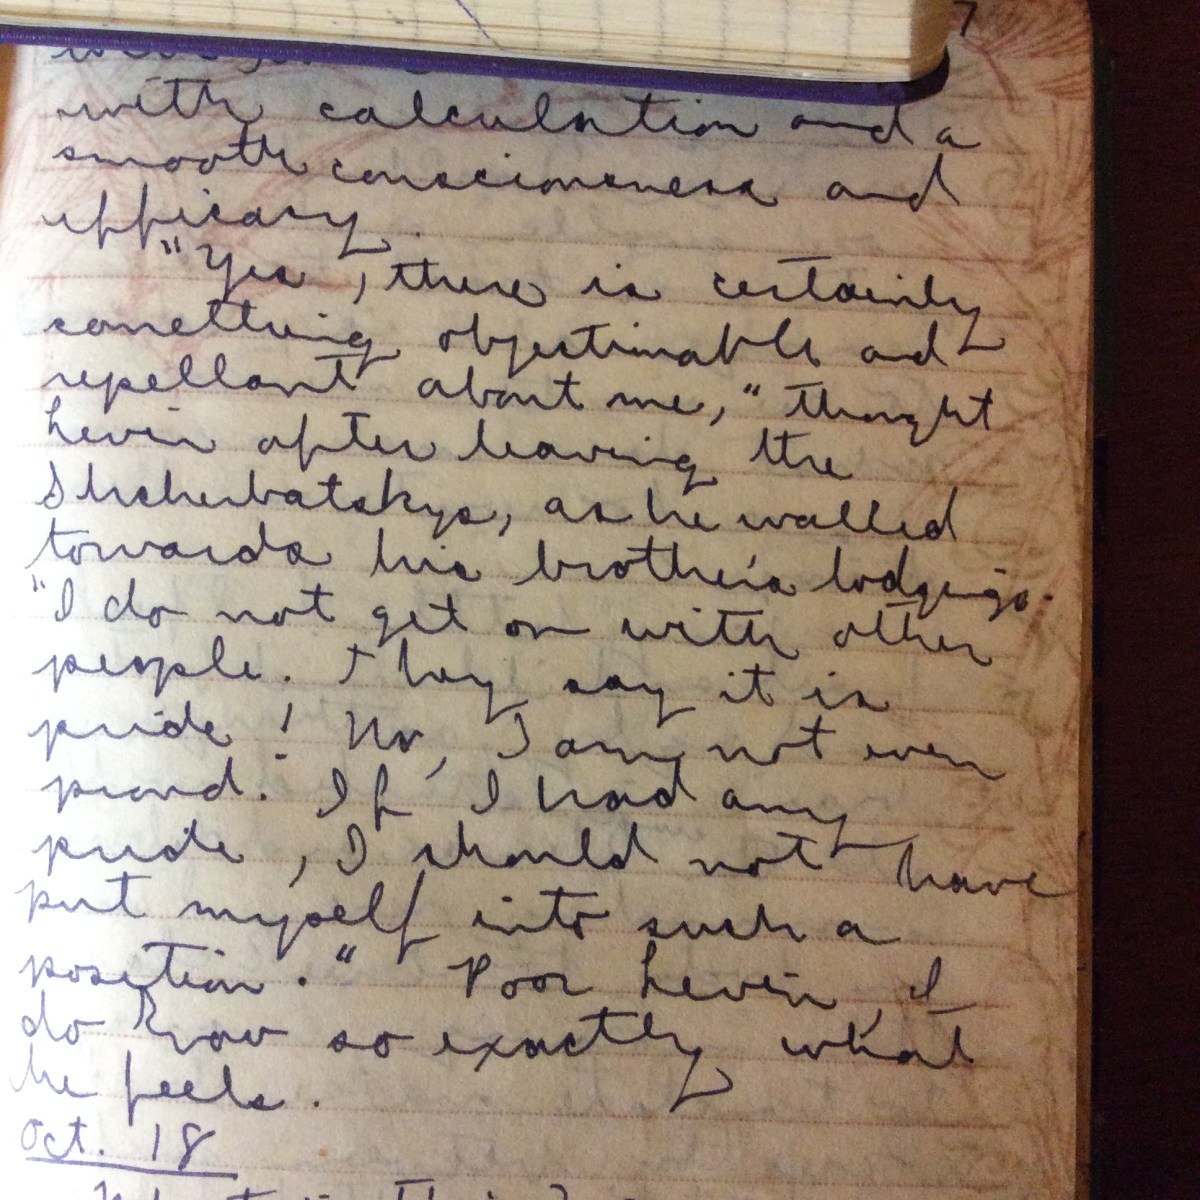 7
with calculation and a
smooth consciousness and
efficacy.
"Yes, there is certainly
something objectionable and
repellant about me," thought
Levin after leaving the
Shcherbatskys, as he walked
towards his brother's lodgings.
"I do not get on with other
people. They say it is
pride! No, I am not even
proud. If I had any
pride, I should not have
put myself into such a
position." Poor Levin, I
do know so exactly what
he feels.
Oct. 18